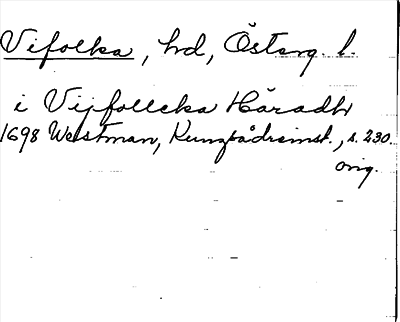 Vifolka, hd, Österg. l.
i Vijfollcka Häradh
1698 Westman, Kungsådreinst., s. 230.
orig.